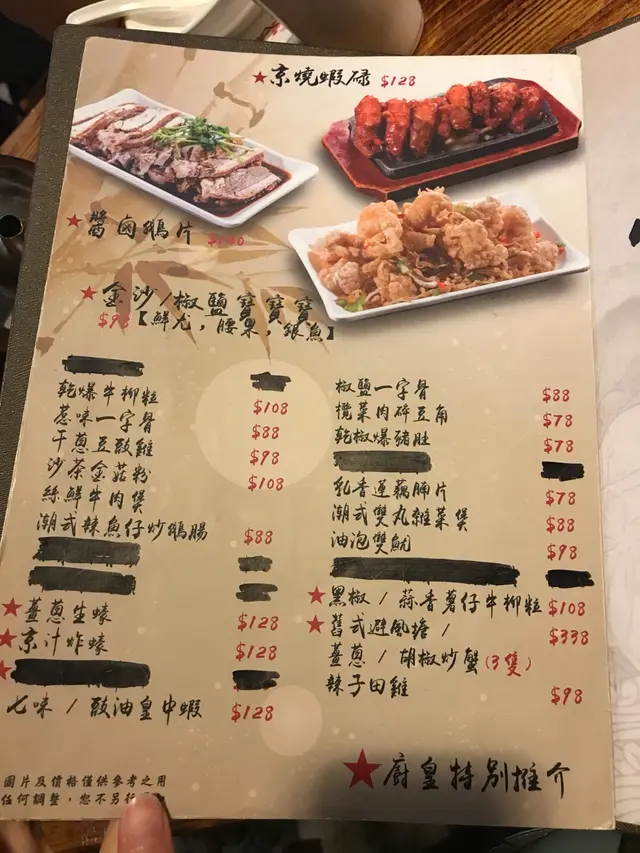 ★京燒蝦碌 $128
★醬鹵鵝片 $140
★金沙/椒鹽寶寶寶
$98【鮮尤,腰果,銀魚】
乾爆牛柳粒 $108
惹味一字骨 $88
干蔥豆豉雞 $98
沙茶金菇粉絲鮮牛肉煲 $108
潮式辣魚仔炒鵝腸 $88
★薑蔥生蠔 $128
★京汁炸蠔 $128
七味 / 豉油皇中蝦 $128
椒鹽一字骨 $88
欖菜肉碎豆角 $78
乾椒爆豬肚 $78
乳香蓮藕腩片 $78
潮式雙丸雜菜煲 $88
油泡雙魷 $98
★黑椒 / 蒜香薯仔牛柳粒 $108
★舊式避風塘 / $338
薑蔥 / 胡椒炒蟹(3隻)
辣子田雞 $98
★廚皇特別推介
圖片及價格僅供參考之用
任何調整,您不另行